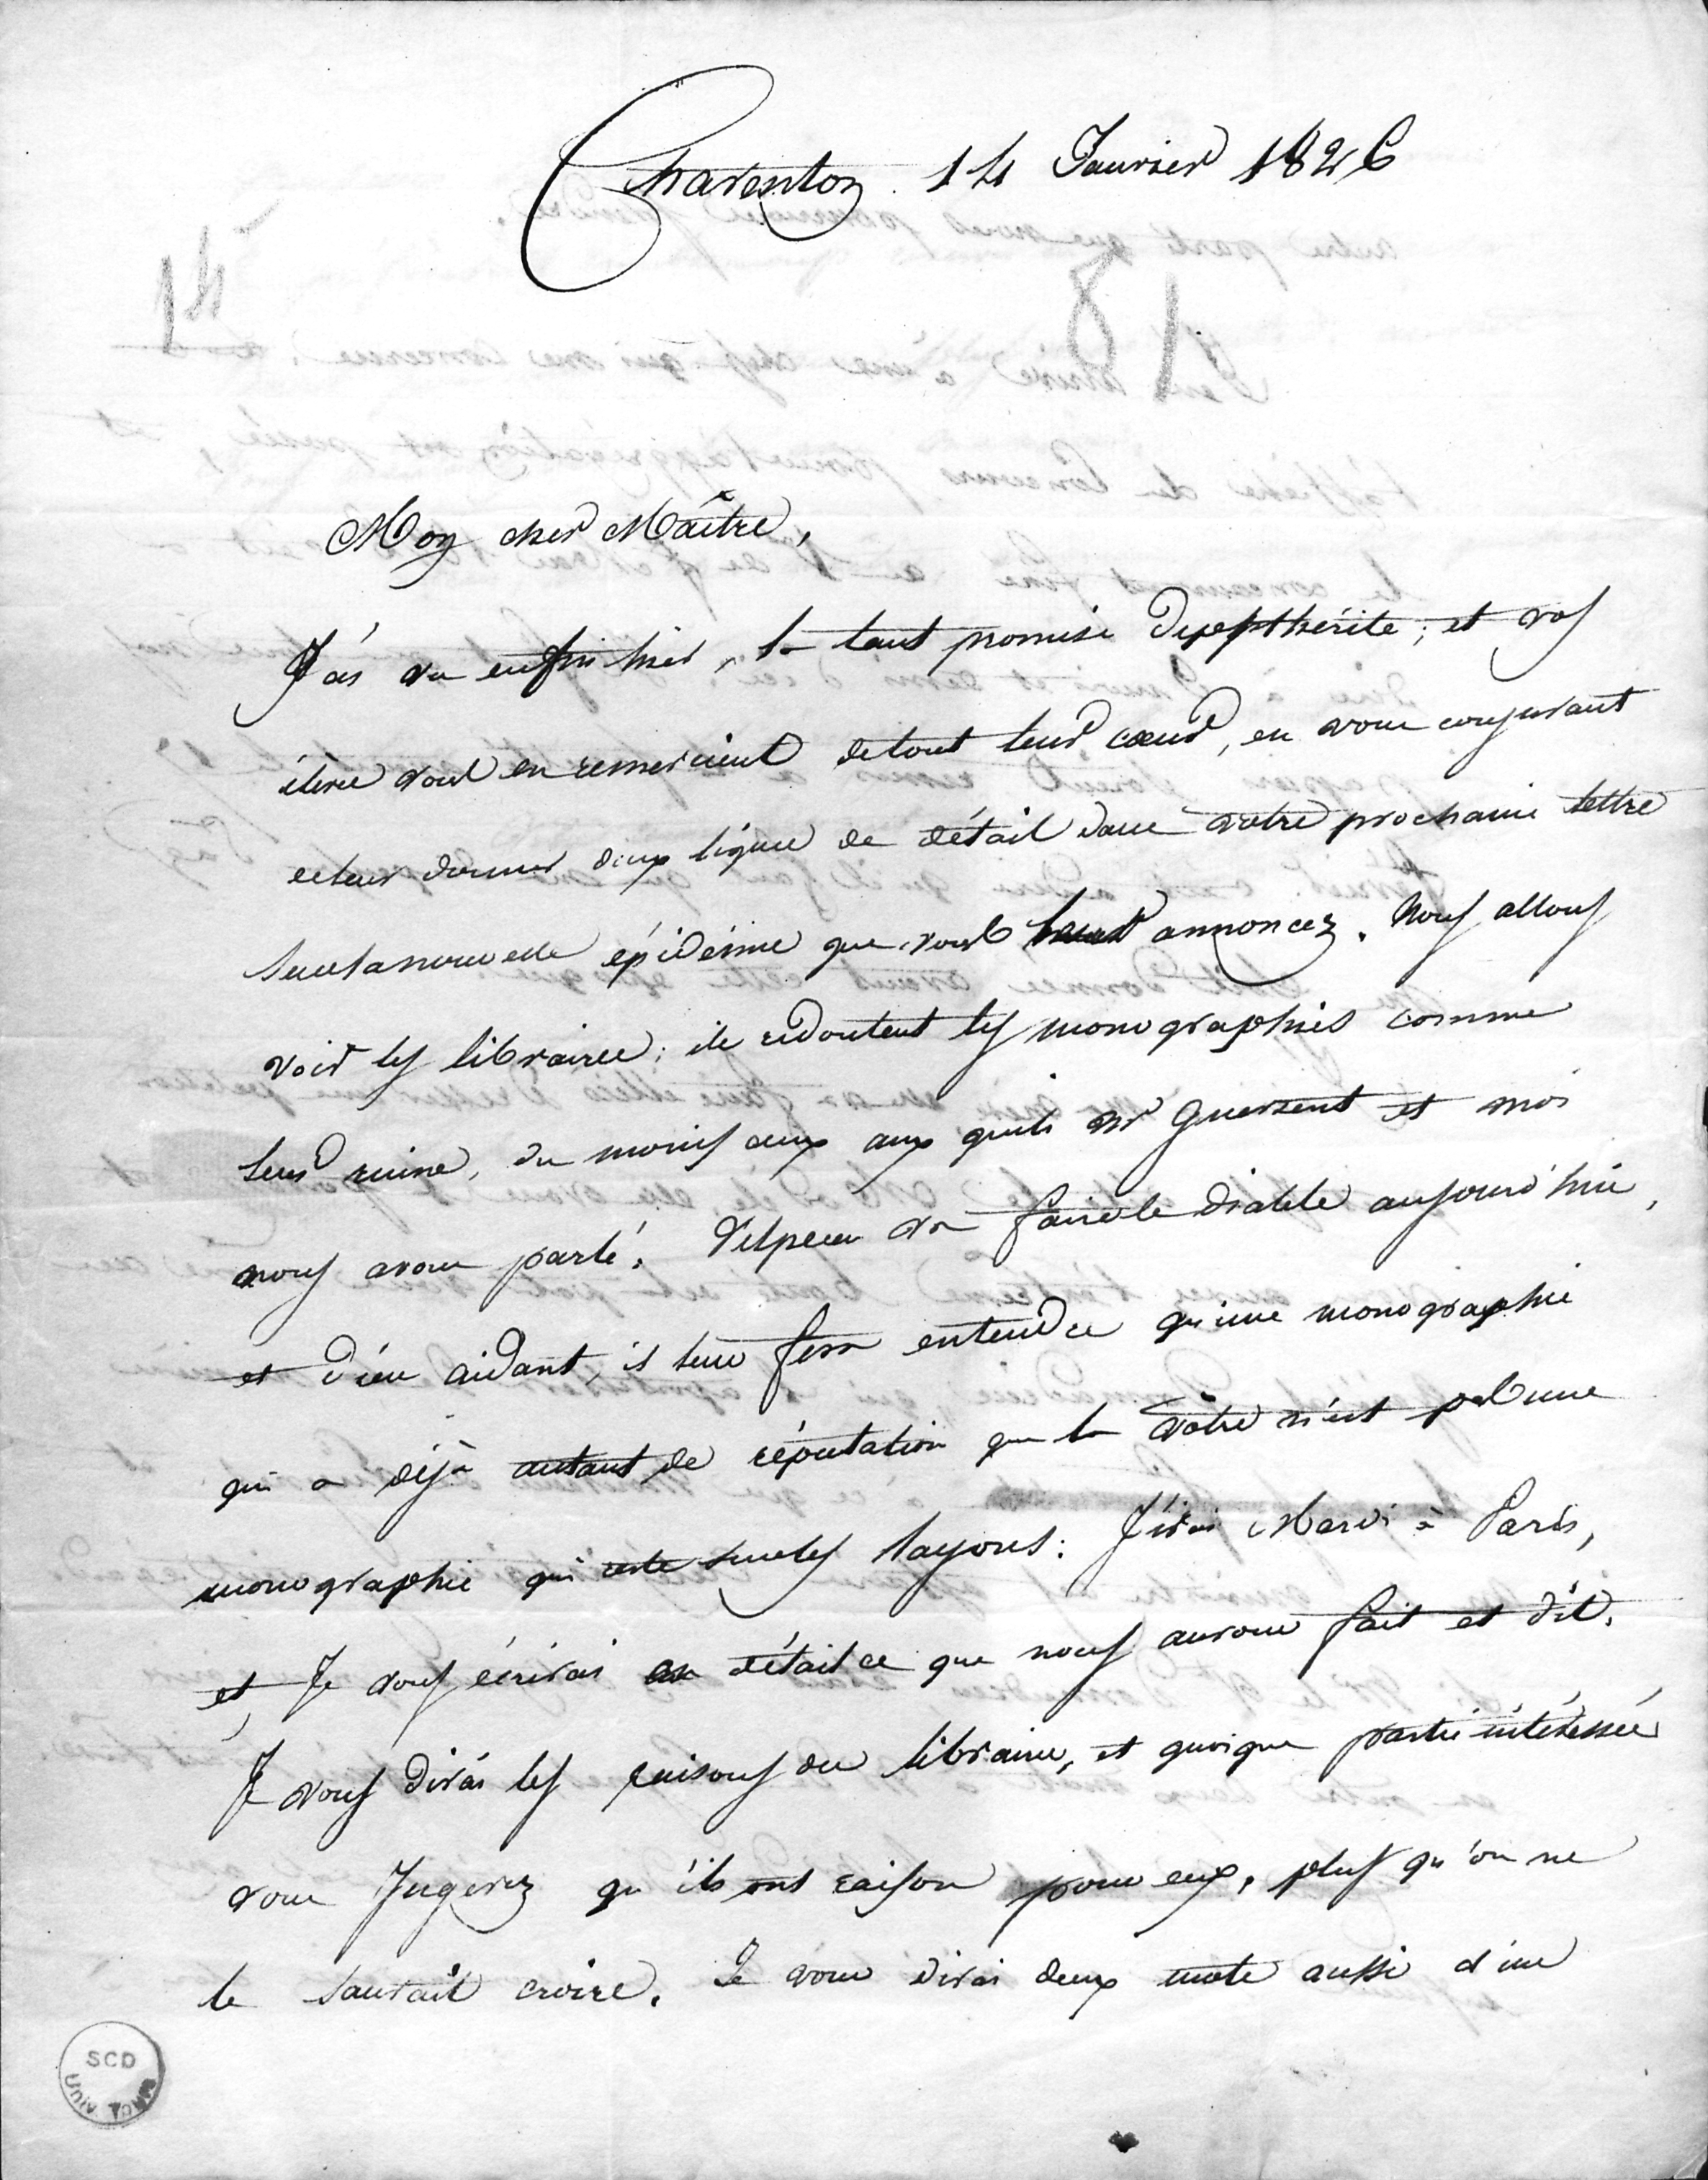 Charenton 14 Janvier 1826
14
81
Mon cher Maître,
J'ai vu enfin hier, la tant promise Dipphthérite; et vos
élèves vous en remercient de tout leur cœur, en vous conjurant
de leur donner deux lignes de détail dans votre prochaine lettre
sur la nouvelle épidémie que vous annoncez. Nous allons
voir les libraires; ils redoutent les monographies comme
leur ruine, du moins ceux aux quels Mr Guersent et moi
nous avons parlé. Velpeau va faire le diable aujourd'hui,
et Dieu aidant, il leur fera entendre qu'une monographie
qui a déjà autant de réputation que la vôtre n'est pas une
monographie qui reste sur les rayons. J'irai Mardi à Paris,
et Je vous écrirai en détail ce que nous aurons fait et dit.
Je vous dirai les raisons du libraire, et quoique partie intéressée
vous Jugerez qu'ils ont raison pour eux, plus qu'on ne
le saurait croire. Je vous dirai deux mots aussi d'une
SCD
Univ